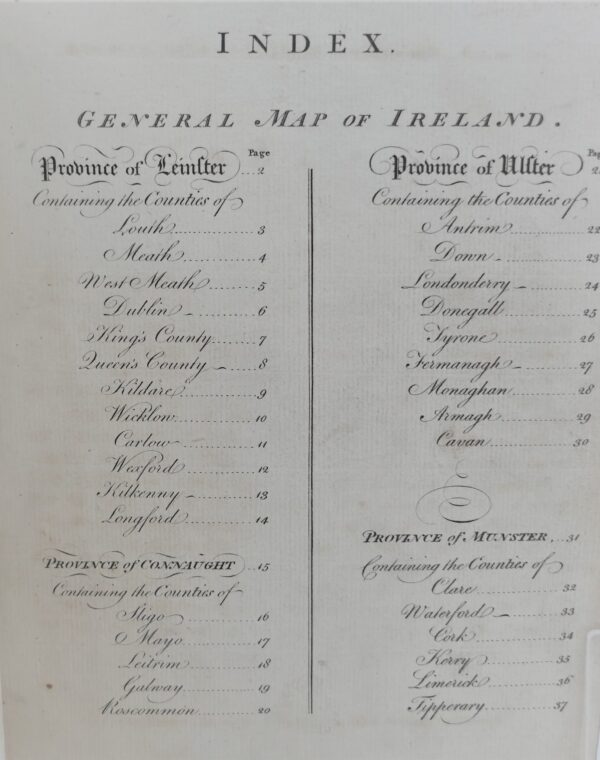 INDEX.
GENERAL MAP OF IRELAND.
Page
Province of Leinster ... 2
Containing the Counties of
Louth ... 3
Meath ... 4
West Meath ... 5
Dublin ... 6
King's County ... 7
Queen's County ... 8
Kildare ... 9
Wicklow ... 10
Carlow ... 11
Wexford ... 12
Kilkenny ... 13
Longford ... 14
PROVINCE of CONNAUGHT ... 15
Containing the Counties of
Sligo ... 16
Mayo ... 17
Leitrim ... 18
Galway ... 19
Roscommon ... 20
Province of Ulster
Containing the Counties of
Antrim ... 22
Down ... 23
Londonderry ... 24
Donegall ... 25
Tyrone ... 26
Fermanagh ... 27
Monaghan ... 28
Armagh ... 29
Cavan ... 30
PROVINCE of MUNSTER ... 31
Containing the Counties of
Clare ... 32
Waterford ... 33
Cork ... 34
Kerry ... 35
Limerick ... 36
Tipperary ... 37